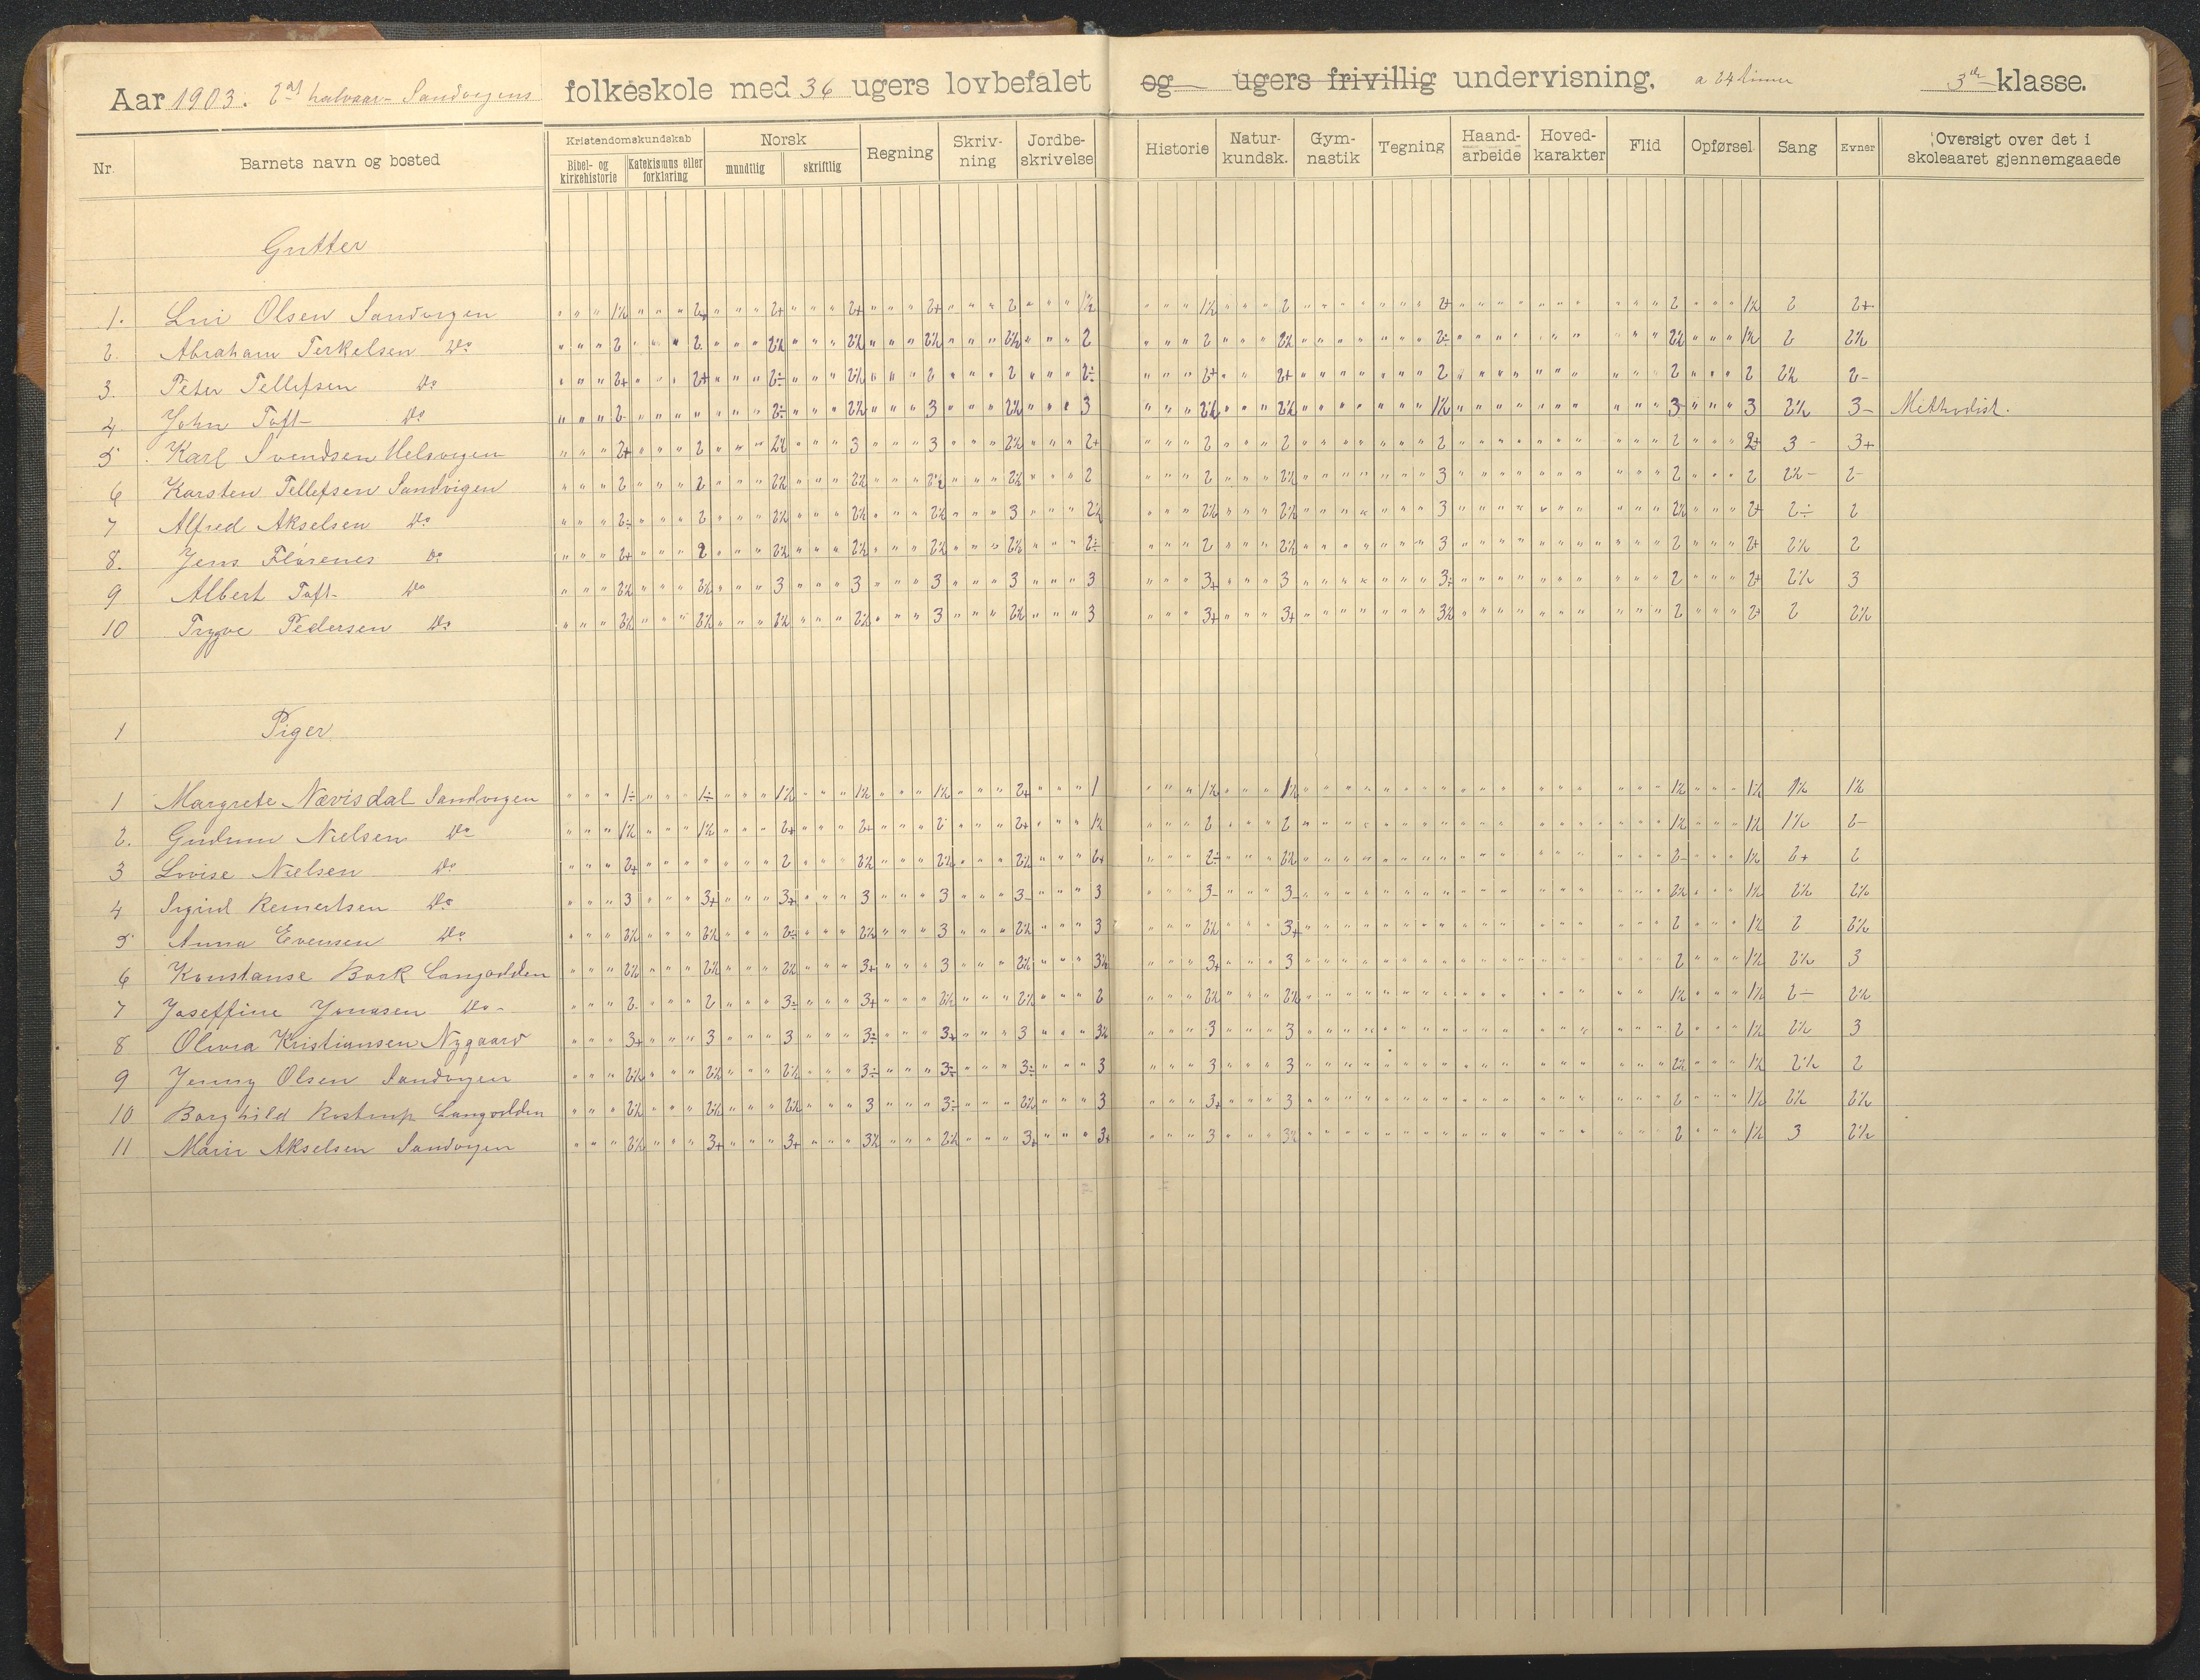 Aar 1903. 2det halvaar Sandvigens folkeskole med 36 ugers lovbefalet og — ugers frivillig undervisning. a 24 timer 3die klasse.
Nr. Barnets navn og bosted Kristendomskundskab Bibel- og kirkehistorie Katekismus eller forklaring Norsk mundtlig skriftlig Regning Skriv-ning Jordbe-skrivelse Historie Natur-kundsk. Gym-nastik Tegning Haand-arbeide Hoved-karakter Flid Opførsel Sang Evner Oversigt over det i skoleaaret gjennemgaaede
Gutter
1. Olsen Sandvigen 1½ 2+ 2+ 2+ 2+ 2 1½ 1½ 2 2+ 2 1½ 2 2+
2. Abraham Terkelsen Do 2 2 2½ 2½ 2½ 2½ 2 2 2½ 2÷ 2½ 1½ 2 2½
3. Peter Tellefsen Do 2+ 2+ 2÷ 2½ 2 2 2÷ 2+ 2+ 2 2 2 2½ 2-
4 John Toft Do 2 2÷ 2½ 3 2½ 3 2½ 2½ 1½ 3 3 2½ 3- Methodist.
5 Karl Svendsen Helsvigen 2+ 2 2½ 3 3 2½ 2+ 2 2 2 2 2+ 3- 3+
6 Karsten Tellefsen Sandvigen 2 2 2½ 2½ 2½ 2½ 2 2 2½ 3 2 2 2½- 2-
7 Alfred Akselsen Do 2÷ 2 2½ 2½ 2½ 3 2½ 2½ 2½ 3 2½ 2+ 2÷ 2
8. Jens Florenes Do 2+ 2 2½ 2½ 2½ 2½ 2÷ 2 2½ 3 2 2+ 2½ 2
9 Albert Toft Do 2½ 2½ 3 3 3 3 3 3+ 3 3÷ 2 2+ 2½ 3
10 Trygve Pedersen Do 2½ 2½ 2½ 2½ 3 2½ 3 3+ 3+ 3½ 2 2+ 2 2½
1 Piger
1 Margrete Nævisdal Sandvigen 1÷ 1÷ 1½ 1½ 1½ 2+ 1 1½ 1½ 1½ 1½ 1½ 1½
2. Gudrun Nielsen Do 1½ 1½ 2+ 2+ 2 2+ 1½ 2 2 1½ 1½ 1½ 2-
3 Lovise Nielsen Do 2+ 2 2½ 2½ 2½ 2+ 2÷ 2½ 2- 1½ 2+ 2
4 Sigrid Reinertsen Do 3 3+ 3+ 3 3 3- 3 3- 3- 2½ 1½ 2½ 2½
5 Anna Evensen Do 2½ 2½ 2÷ 2½ 3 2½ 3 2½ 3+ 2 1½ 2 2½
6 Konstanse Bork Langodden 2½ 2½ 2½ 3+ 3 2½ 3½ 3+ 3 2 1½ 2½ 3
7 Joseffine Jonasen Do 2 2 3÷ 3+ 2½ 2½ 2 2½ 2½ 1½ 1½ 2- 2½
8 Olivia Kristiansen Nygaard 3+ 3 3 3÷ 3+ 3 3½ 3 3 2 1½ 2½ 3
9 Jenny Olsen Sandvigen 2½ 2½ 2½ 3÷ 3÷ 3÷ 3 3 3 2½ 1½ 2½ 2
10 Borghild Rostrup Langodden 2½ 2½ 2½ 3 3÷ 2½ 3 3+ 3 2 1½ 2½ 2½
11 Marie Akselsen Sandvigen 2½ 3+ 3+ 3½ 2½ 3+ 3+ 3 3½ 2 1½ 3 2½